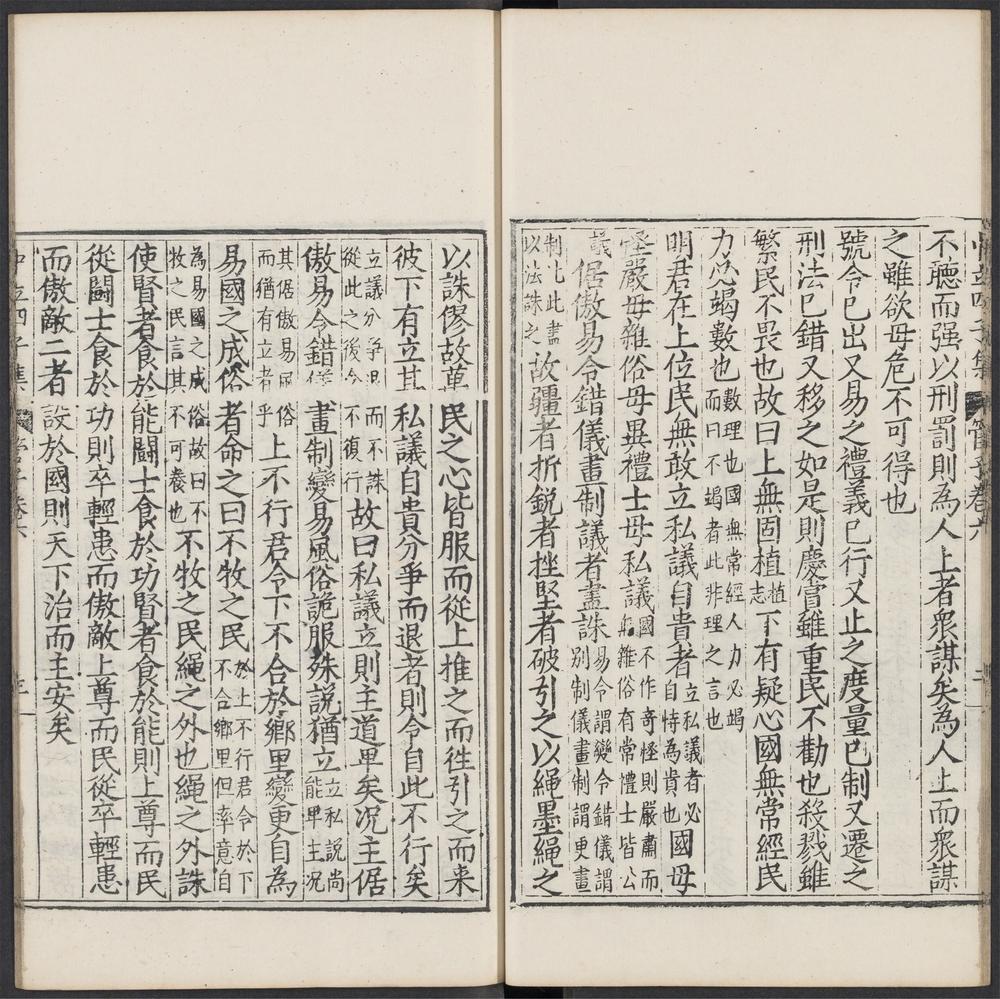 不聽而强以刑罰則為人上者衆謀矣為人上而衆謀
之雖欲毋危不可得也
號令已出又易之禮義已行又止之度量已制又遷之
刑法已錯又移之如是則慶賞雖重民不勸也殺戮雖
繁民不畏也故曰上無固植植志下有疑心國無常經民
力必竭數也數理也國無常經人力必竭而曰不竭者此非理之言也
明君在上位民無敢立私議自貴者立私議者必自恃為貴也國毋
怪嚴毋雜俗毋異禮士毋私議國不作奇怪則嚴肅而無雜俗有常禮士皆公
議倨傲易令錯儀畫制議者盡誅易令謂變令錯儀謂别制儀畫制謂更畫
制此此盡以法誅之故彊者折銳者挫堅者破引之以繩墨繩之
以誅僇故萬民之心皆服而從上推之而往引之而来
彼下有立其私議自貴分爭而退者則令自此不行矣
立議分爭退從此之後令而不誅不復行故曰私議立則主道卑矣况主倨
傲易令錯儀畫制變易風俗詭服殊說猶立立私說尚能卑主况
其倨傲易風而猶有立者俗乎上不行君令下不合於鄉里變更自為
易國之成俗者命之曰不牧之民於上不行君令於下不合鄉里但率意自
為易國之成牧之民言其俗故曰不不可養也不牧之民繩之外也繩之外誅
使賢者食於能鬪士食於功賢者食於能則上尊而民
從鬪士食於功則卒輕患而傲敵上尊而民從卒輕患
而傲敵二者設於國則天下治而主安矣
管子卷六